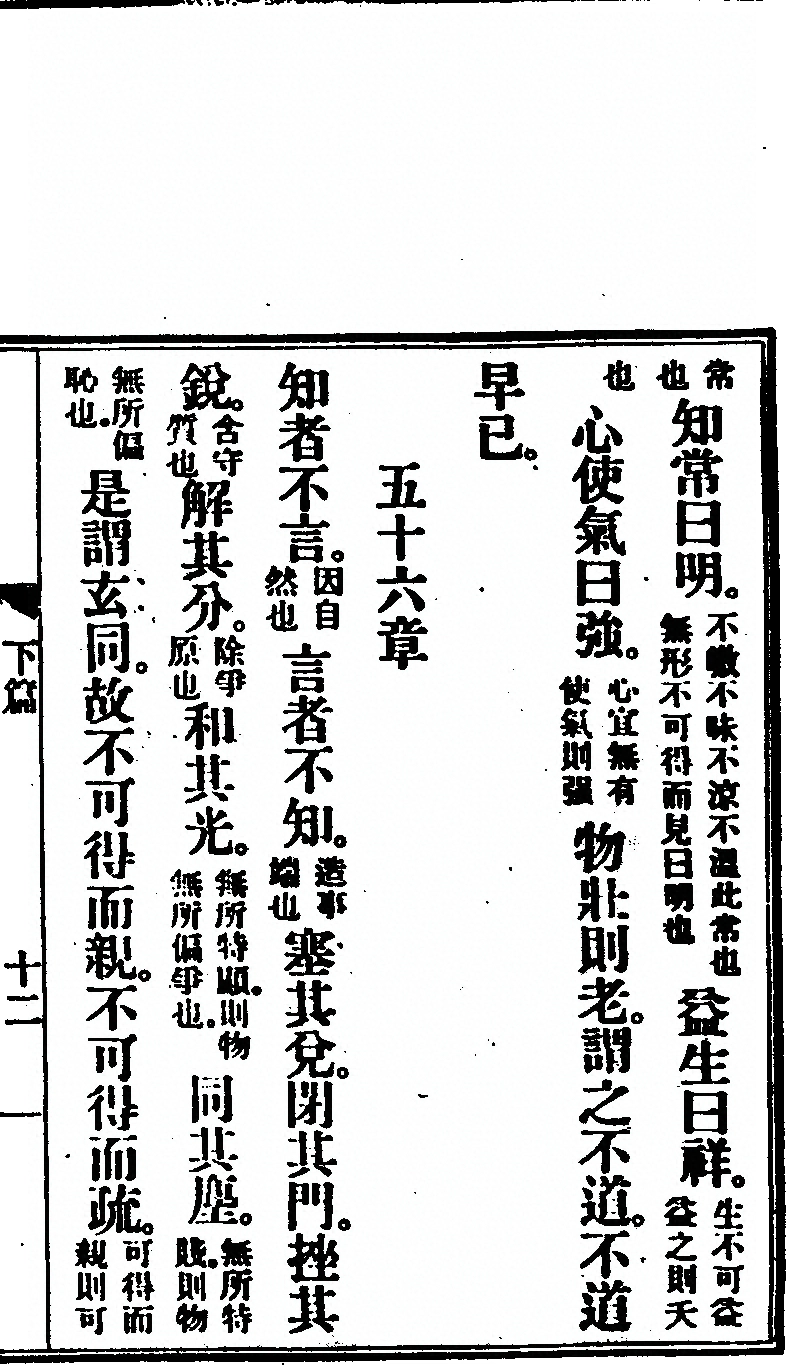 常也知常曰明。不皦不昧不涼不溫此常也無形不可得而見曰明也益生曰祥。生不可益益之則夭
也心使氣曰強。心宜無有使氣則强物壯則老。謂之不道。不道
早已。
五十六章
知者不言。因自然也言者不知。造事端也塞其兌。閉其門。挫其
銳。含守質也解其分。除爭原也和其光。無所特顯。則物無所偏爭也。同其塵。無所特賤。則物
無所偏恥也。是謂玄同。故不可得而親。不可得而疏。可得而親則可
下篇
十二